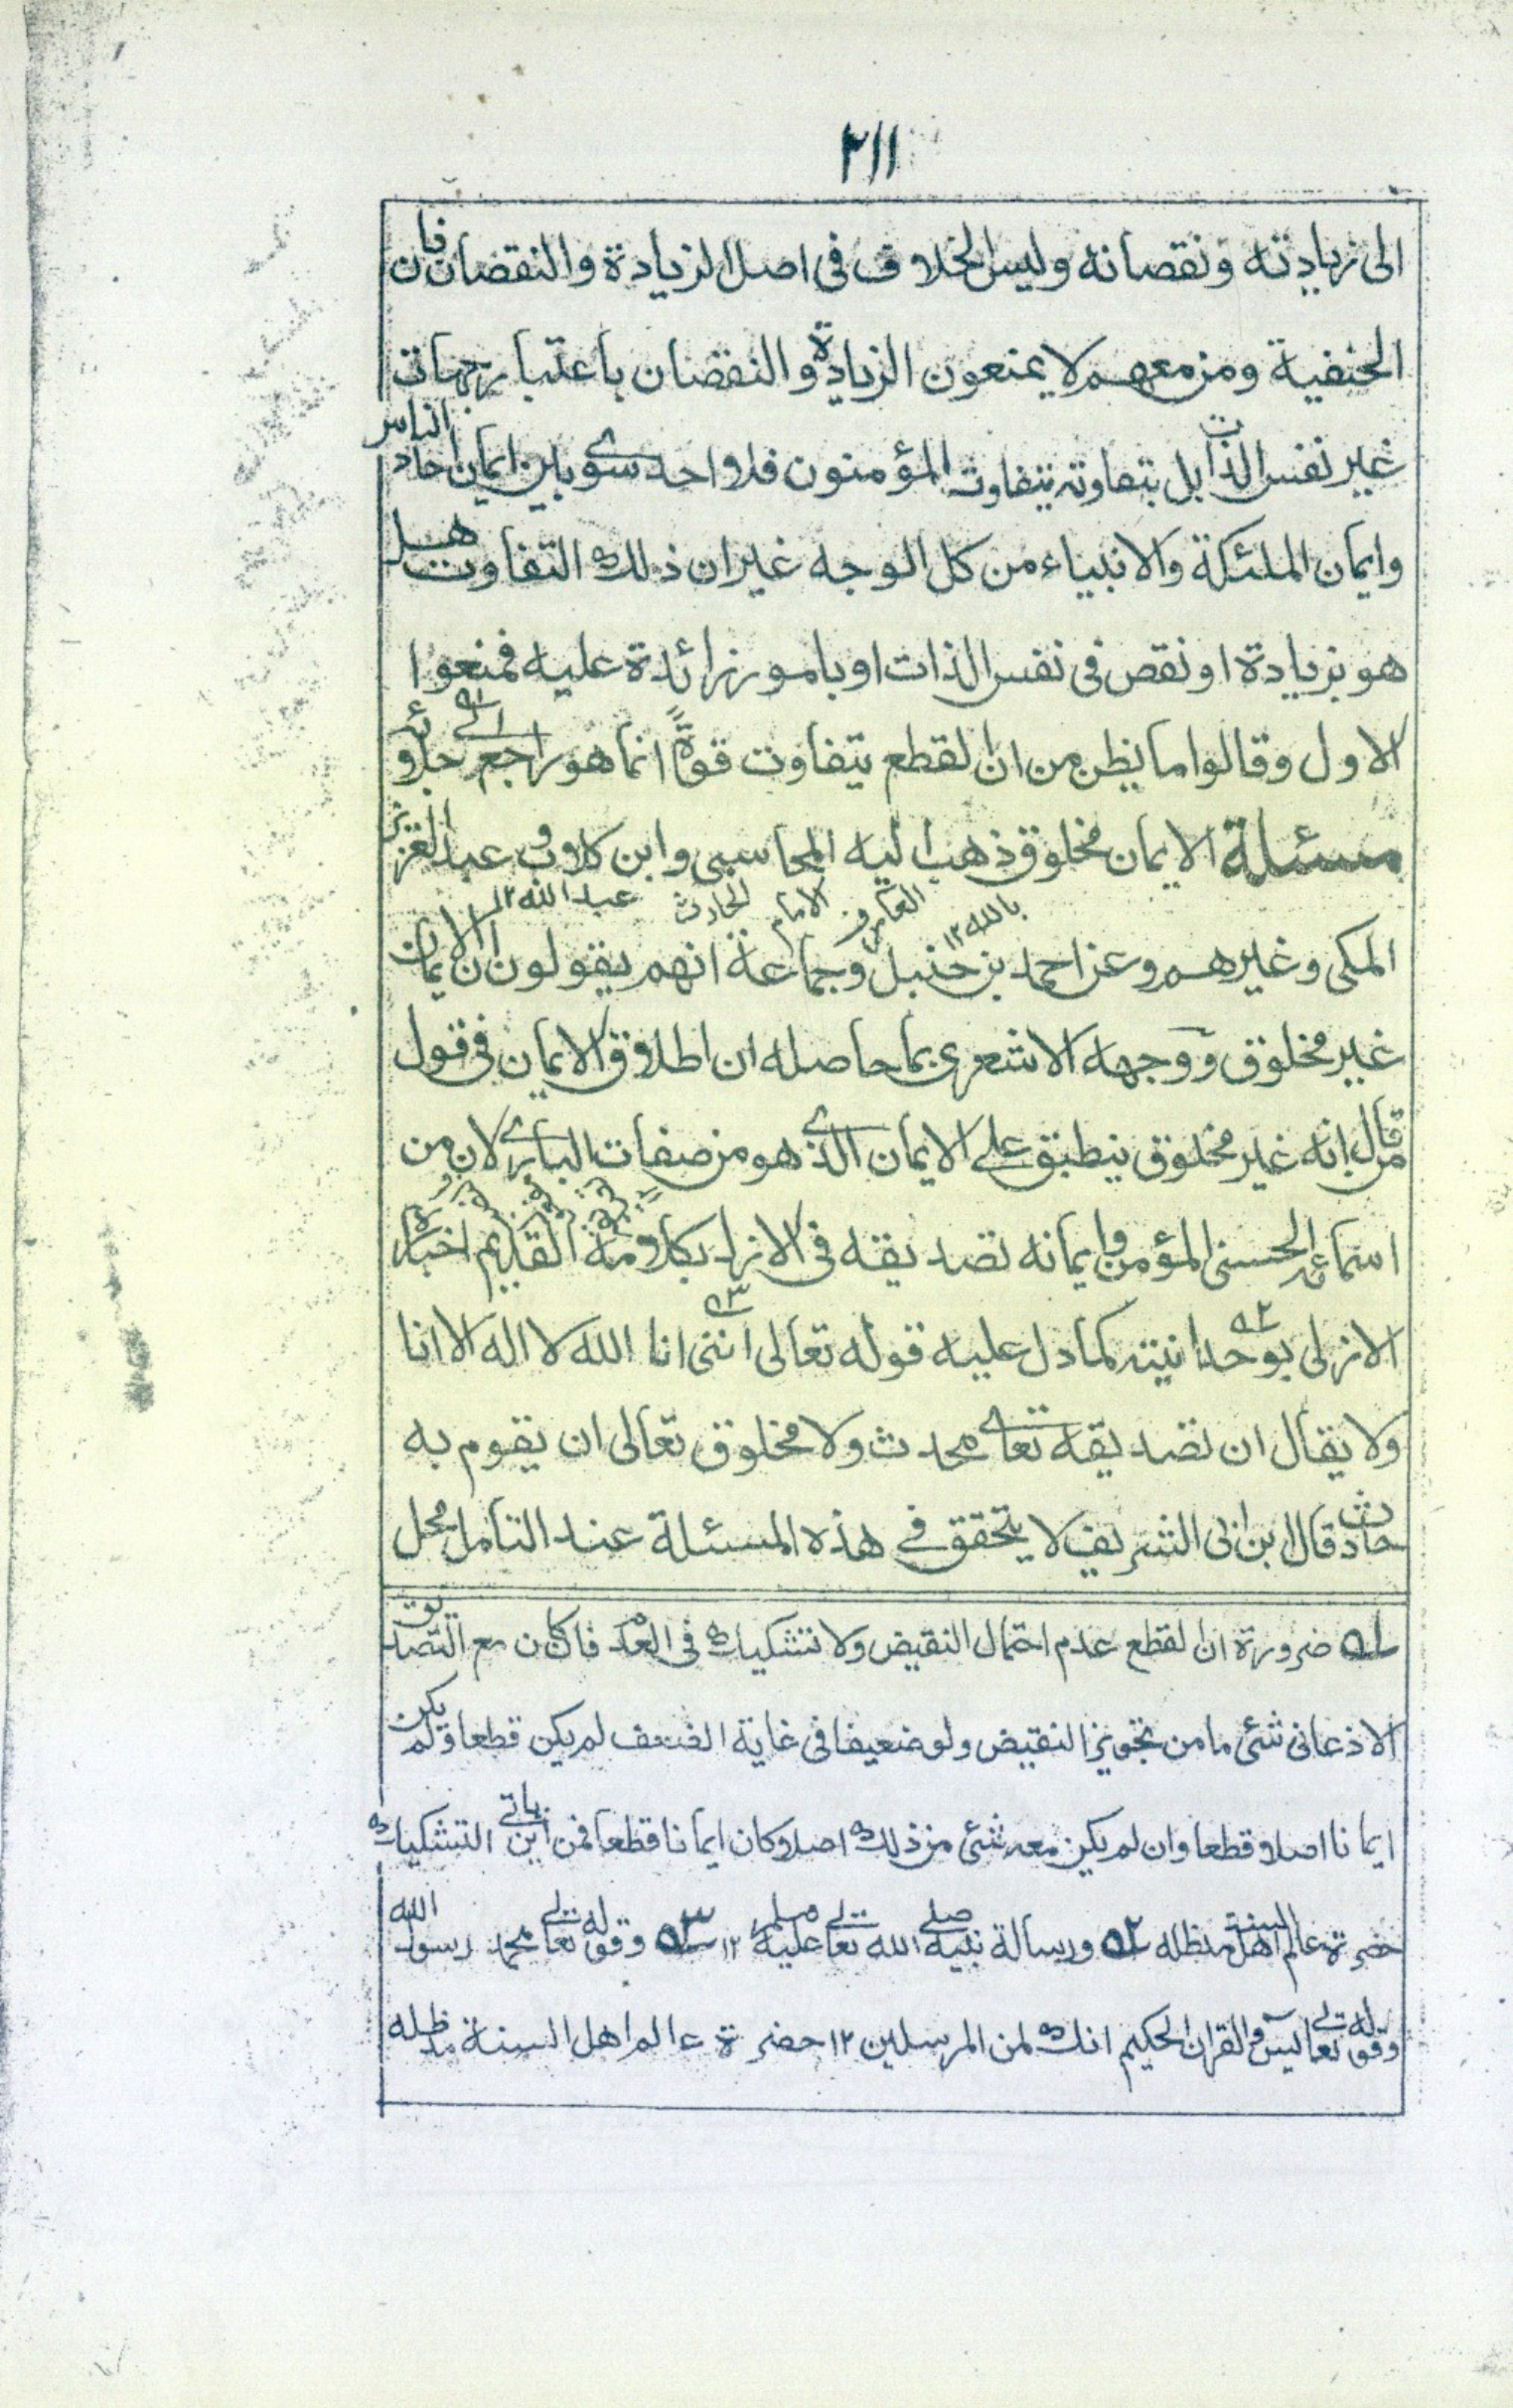 ٢١١
الى زيادته ونقصانه وليس الخلاف فى اصل الزيادة والنقصان فان
الحنفية ومن معهم لا يمنعون الزيادة والنقصان باعتبار جهات
غير نفس الذات بل بتفاوته يتفاوت المؤمنون فلا واحد سوى بين ايمان احاد الناس
وايمان الملئكة والانبياء من كل الوجه غير ان ذلك التفاوت هل
هو بزيادة او نقص فى نفس الذات او بامور زائدة عليه فمنعوا
الاول وقالوا ما يظن من ان القطع يتفاوت قوةً انما هو راجع الى جلائه
مسئلة الايمان مخلوق ذهب اليه المحاسبى وابن كلاب وعبد العزيز
الحارث عبد الله ١٢
المكى وغيرهم وعن احمد بن حنبل وجماعة انهم يقولون ان الايمان
الامام العارف بالله ١٢
غير مخلوق ووجهه الاشعرى بما حاصله ان اطلاق الايمان فى قول
من قال انه غير مخلوق ينطبق على الايمان الذى هو من صفات البارى لان من
اسمائه الحسنى المؤمن وايمانه تصديقه فى الازل بكلامه القديم اخباره
الازلى بوحدانيته كما دل عليه قوله تعالى اننى انا الله لا اله الا انا
ولا يقال ان تصديقه تعالى محدث ولا مخلوق تعالى ان يقوم به
حادث قال ابن ابى الشريف لا يتحقق فى هذه المسئلة عند التامل محل
ضرورة ان القطع عدم احتمال النقيض ولا تشكيك فى العدم فان كان مع التصديق
الاذعانى شئى ما من تجويز النقيض ولو ضعيفا فى غاية الضعف لم يكن قطعا ولم يكن
ايمانا اصلا قطعا وان لم يكن معه شئى من ذلك اصلا كان ايمانا قطعا فمن اين ياتى التشكيك
حضرة عالم اهل السنة مدظله ٥٢ ورسالة نبيه صلى الله تعالى عليه وسلم ١٢ ٥٣ وقوله تعالى محمد رسول الله
وقوله تعالى يس والقران الحكيم انك لمن المرسلين ١٢ حضرة عالم اهل السنة مدظله